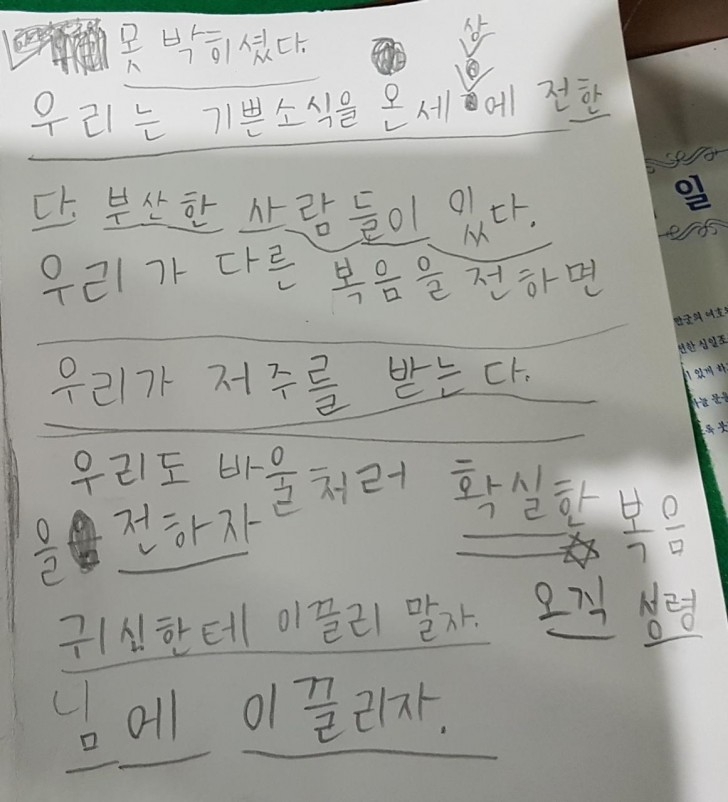 못 박히셨다.
우리는 기쁜소식을 온세상에 전한
다. 부산한 사람들이 있다.
우리가 다른 복음을 전하면
우리가 저주를 받는다.
우리도 바울처러 확실한 복음
을 전하자
귀심한테 이끌리 말자. 오직 성령
님에 이끌리자.
일